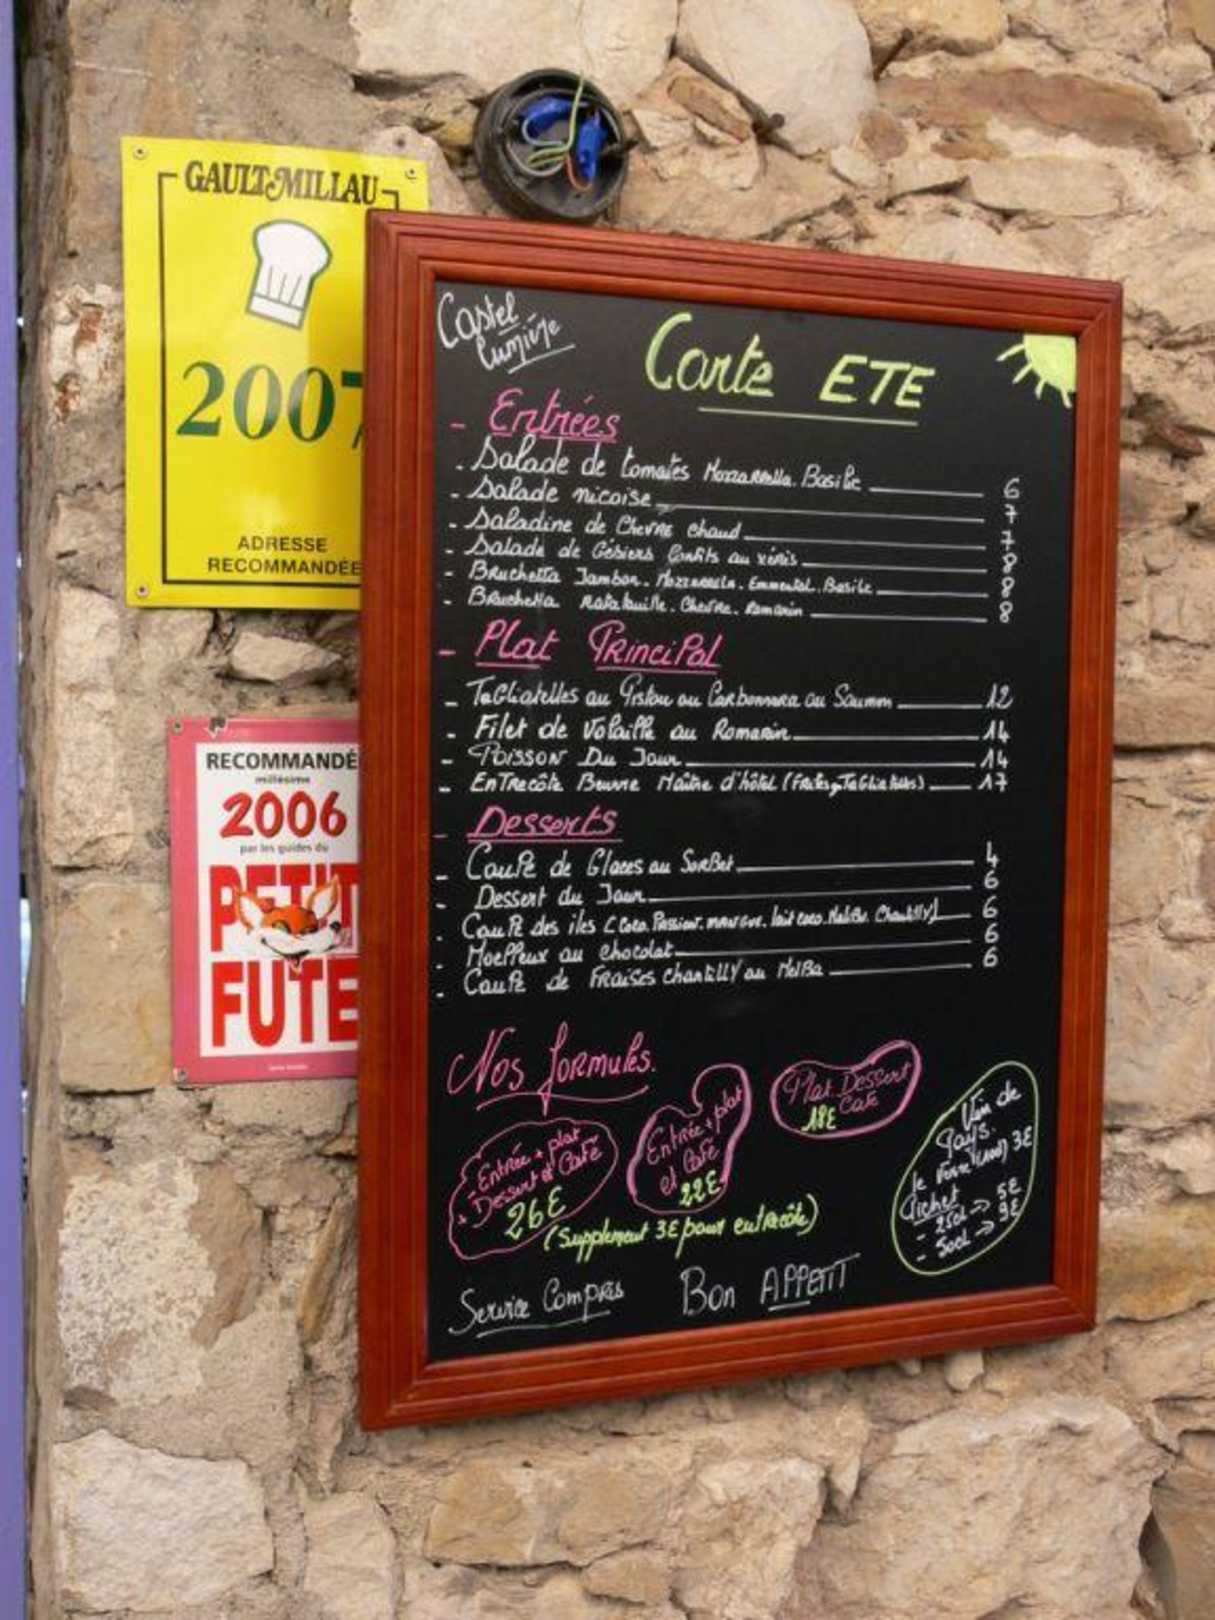 GAULT MILLAU
2007
ADRESSE
RECOMMANDÉE
RECOMMANDÉ
millésime
2006
par les guides du
PETIT
FUTE
Castel
Lumière
Carte ETE
- Entrées
. Salade de tomates Mozzarella. Basilic 6
. Salade niçoise 7
. Saladine de Chevre chaud 7
- Salade de Gésiers Confits au xérès 8
- Bruchetta Jambon. Mozzarella. Emmental. Basilic 8
- Bruchetta Ratatouille. Chevre. Romarin 8
- Plat Principal
- Tagliatelles au Pistou ou Carbonnara ou Saumon 12
- Filet de Volaille au Romarin 14
- Poisson Du Jour 14
- Entrecôte Beurre Maître d'hôtel (Frites ou Tagliatelles) 17
- Desserts
- Coupe de Glaces ou Sorbet 4
- Dessert du Jour 6
. Coupe des iles (Coco. Passion. mangue. lait coco. Malibu. Chantilly) 6
. Moelleux au chocolat 6
- Coupe de Fraises Chantilly ou Melba 6
Nos formules.
- Entrée + plat
+ Dessert et Café
26€
Entrée + plat
et Café
22€
Plat. Dessert
Café
18€
(Supplement 3€ pour entrecôte)
Vin de
Pays.
le verre 3€
Pichet
- 25cl → 5€
- 50cl → 9€
Service Compris
Bon APPETIT